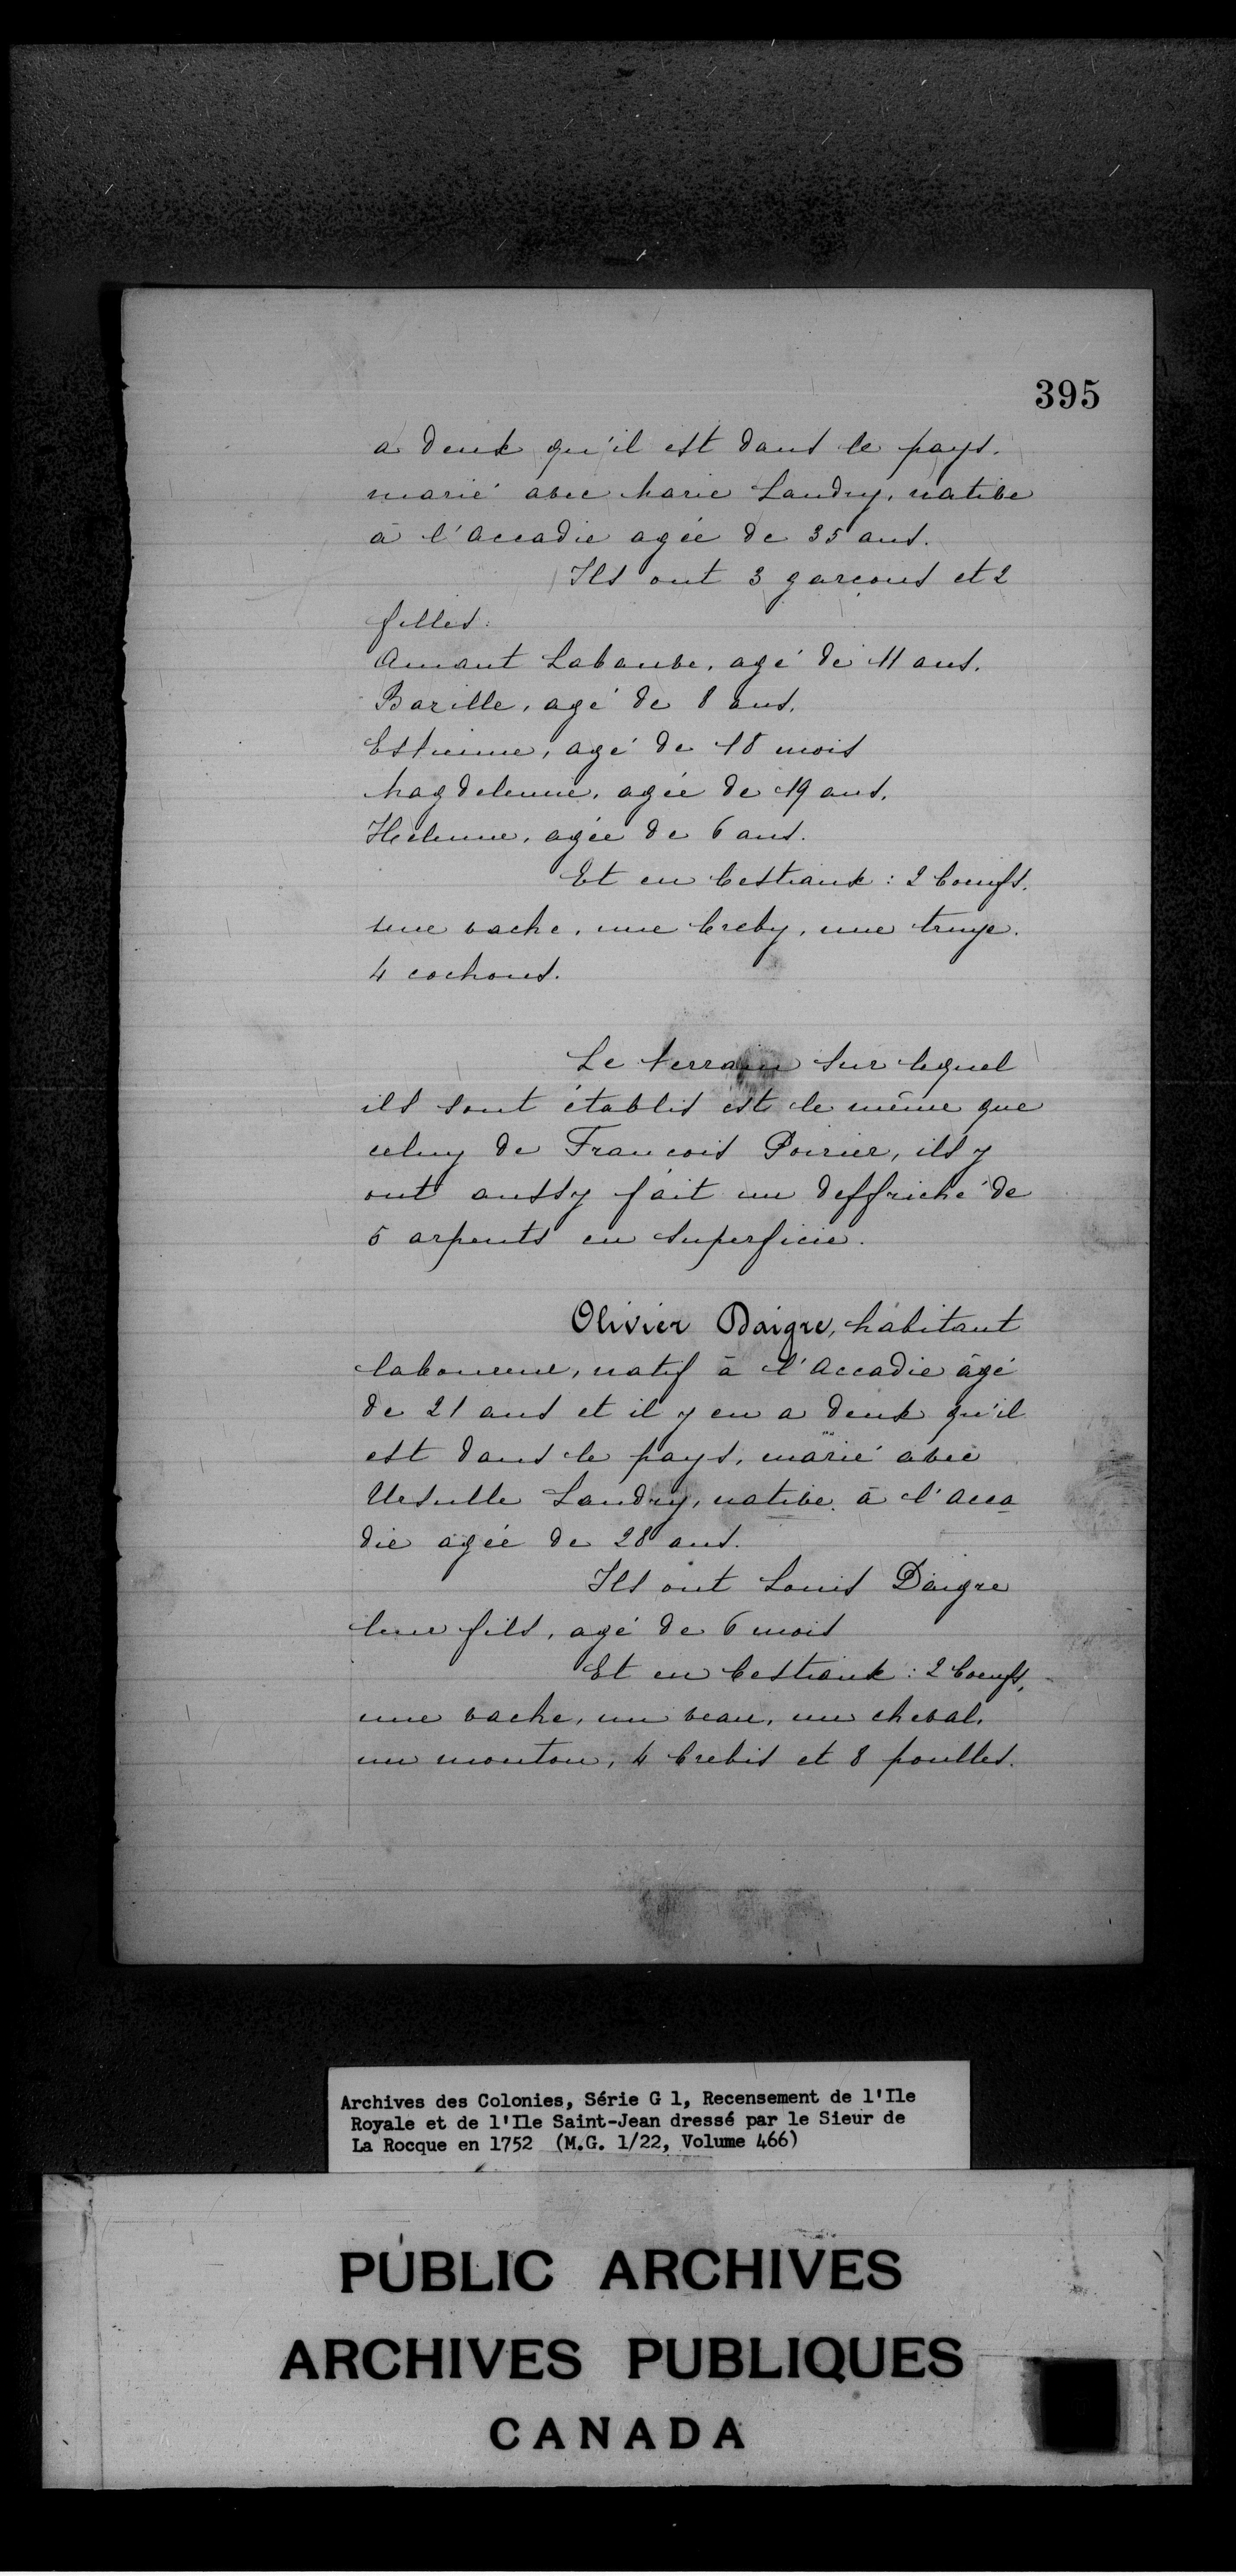 395
a deux qu'il est dans le pays.
marié avec Marie Landry, native
à l'Accadie agée de 35 ans.
Ils ont 3 garçons et 2
filles:
Amant Labauve, agé de 11 ans.
Bazille, agé de 8 ans.
Estienne, agé de 18 mois
Magdelenne, agée de 19 ans.
Helenne, agée de 6 ans.
Et en bestiaux: 2 boeufs.
une vache, une breby, une truye.
4 cochons.
Le terrain sur lequel
ils sont établis est le même que
celuy de Francois Poirier, ils y
ont aussy fait un deffriché de
5 arpents en superficie.
Olivier Daigre, habitant
laboureur, natif à l'Accadie âgé
de 21 ans et il y en a deux qu'il
est dans le pays, marié avec
Ursulle Landry, native à l'Acca
die agée de 28 ans.
Ils ont Louis Daigre
leur fils, agé de 6 mois
Et en bestiaux: 2 boeufs,
une vache, un veau, un cheval,
un mouton, 4 brebis et 8 poulles.
Archives des Colonies, Série G 1, Recensement de l'Ile
Royale et de l'Ile Saint-Jean dressé par le Sieur de
La Rocque en 1752 (M.G. 1/22, Volume 466)
PUBLIC ARCHIVES
ARCHIVES PUBLIQUES
CANADA